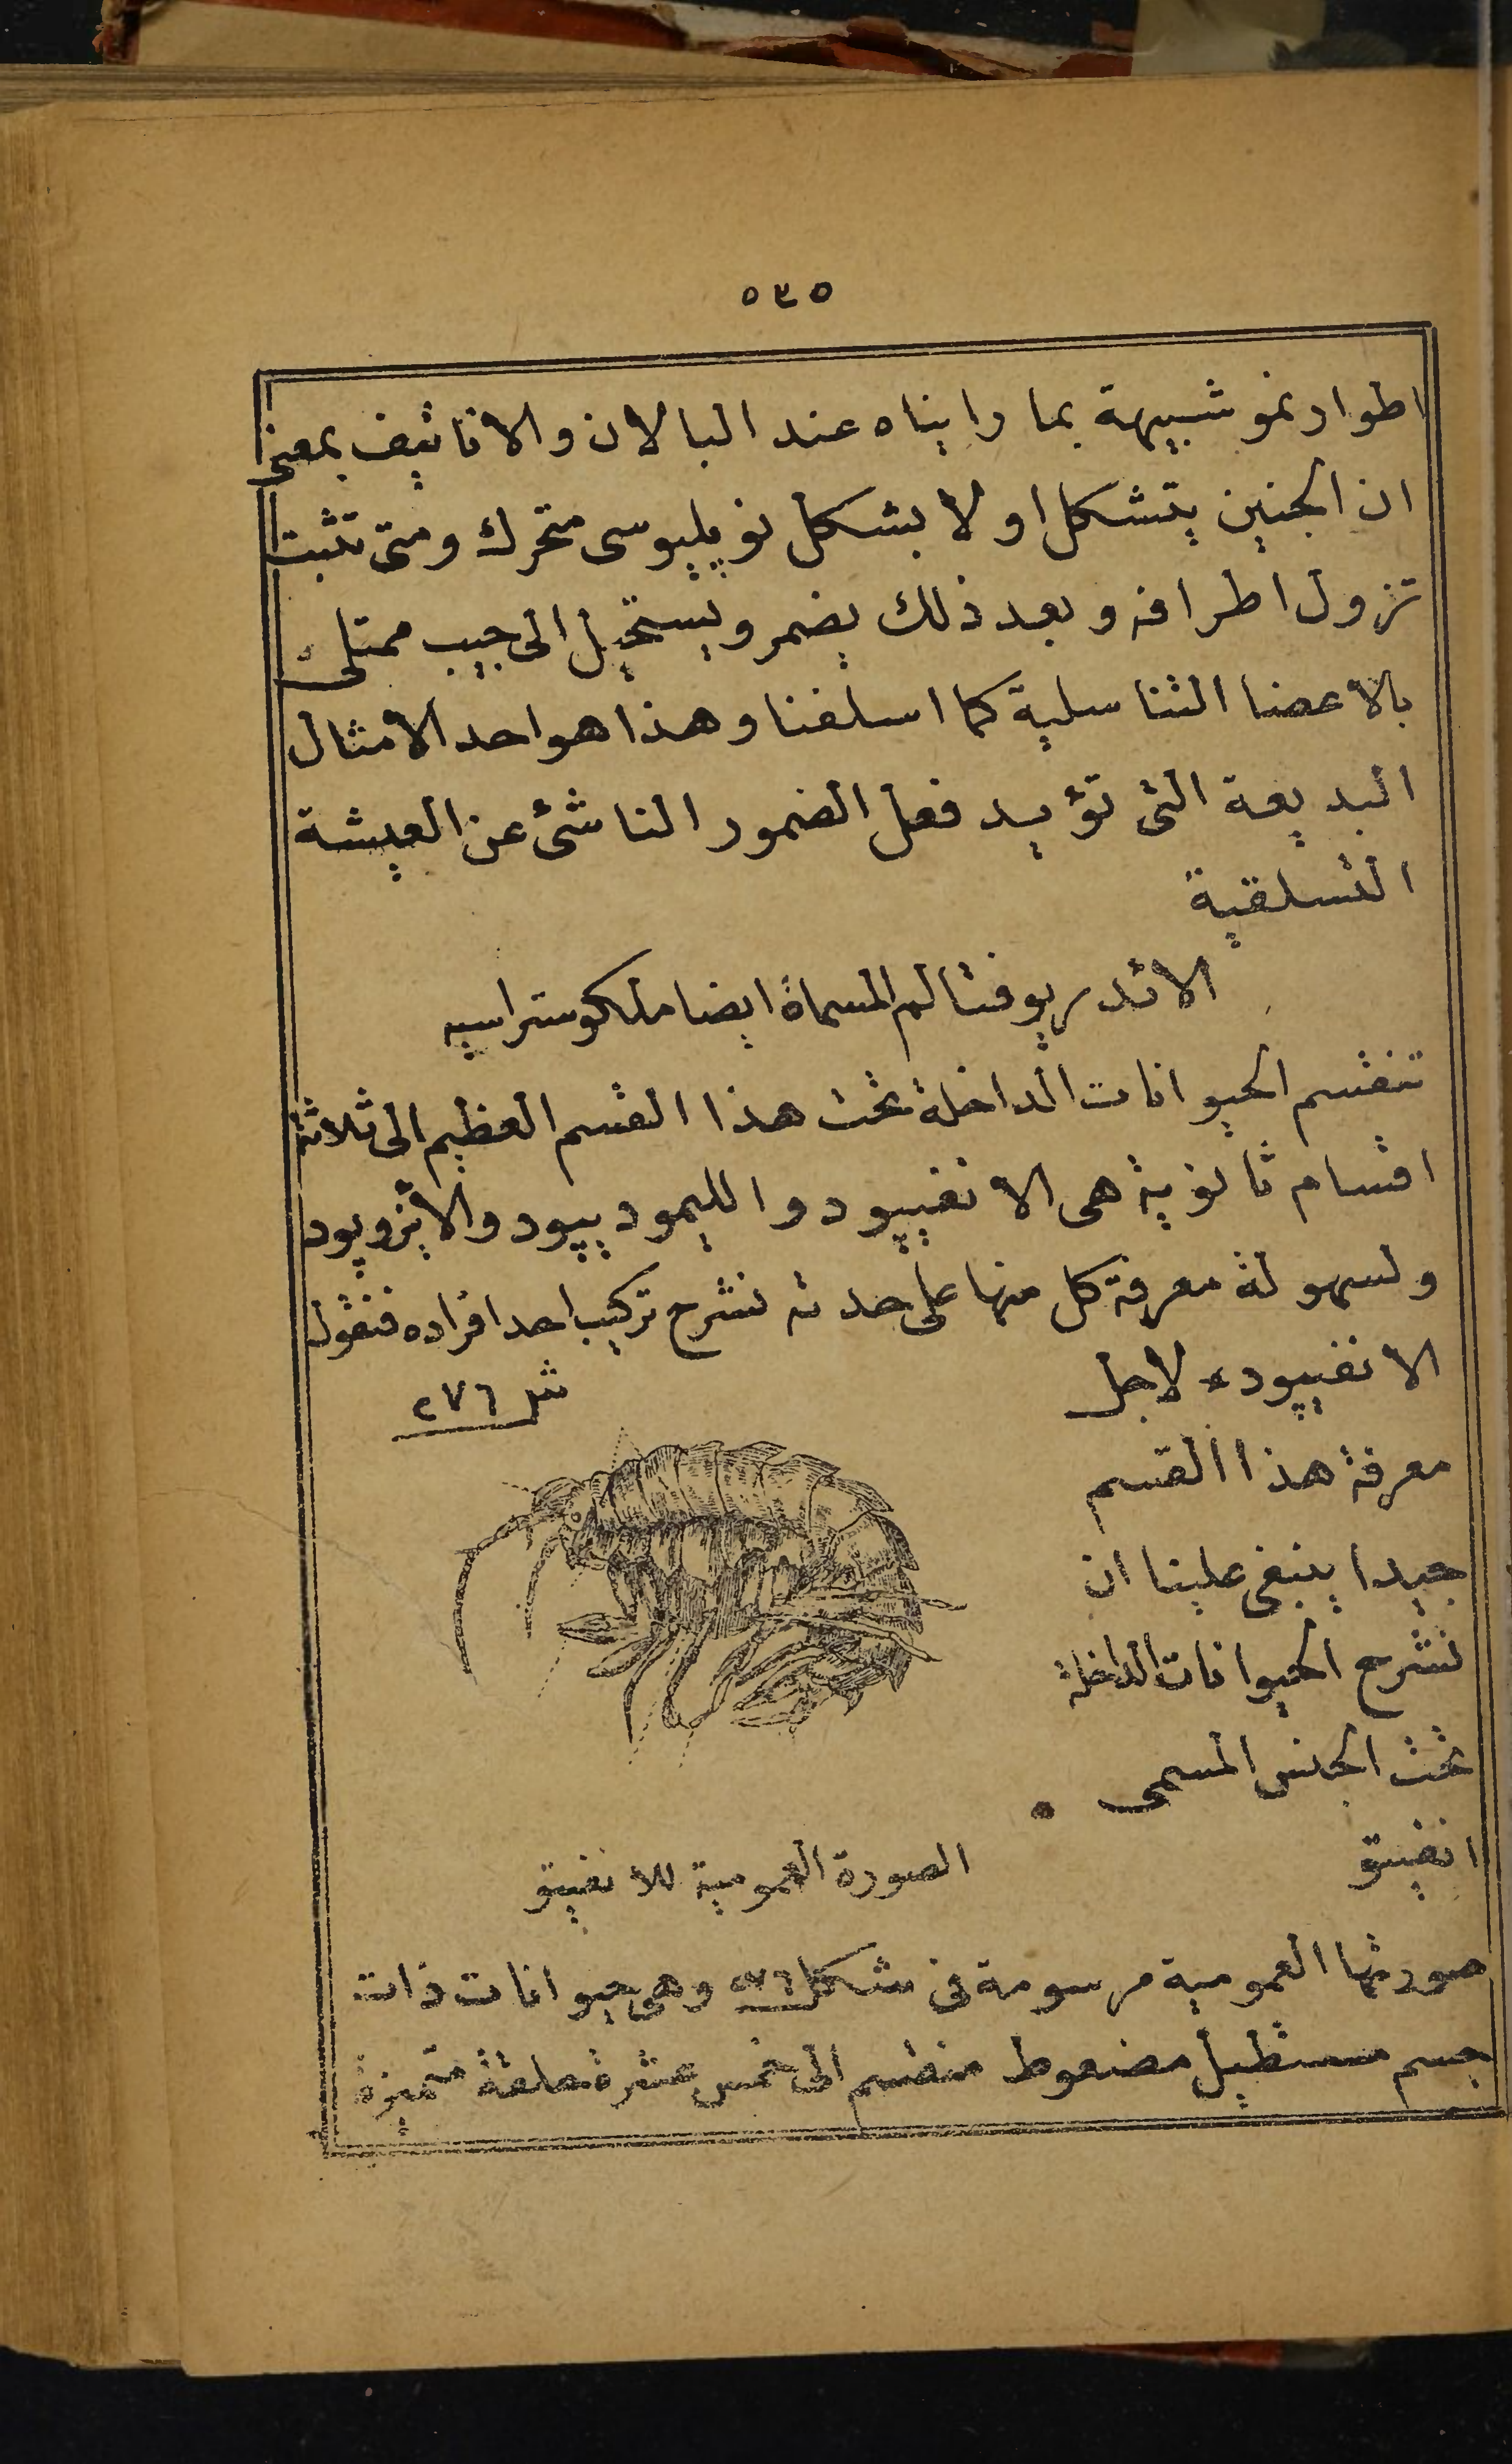 ٥٣٥
اطوار نمو شبيهة بما رايناه عند البالان والاناتيف بمعنى
ان الجنين يتشكل اولا بشكل نوپليوسى متحرك ومتى تثبت
تزول اطرافه وبعد ذلك يضمر ويستحيل الى جيب ممتلئ
بالاعضا التناسلية كما اسلفنا وهذا هو احد الامثال
البديعة التى تؤيد فعل الضمور الناشئ عن العيشة
التسلقية
المسماة ايضا ملكوستراسيه
تنقسم الحيوانات الداخلة تحت هذا القسم العظيم الى ثلاثة
اقسام ثانوية هى الانفيپود والليموديپود والايزوپود
ولسهولة معرفة كل منها على حدته نشرح تركيب احد افراده فنقول
الانفيپود لاجل
شكل ٢٧٦
معرفة هذا القسم
جيدا ينبغى علينا ان
نشرح الحيوانات الداخلة
تحت الجنس المسمى
انفيتو
الصورة العمومية للانفيتو
صورتها العمومية مرسومة فى شكل ٢٧٦ وهى حيوانات ذات
جسم مستطيل مضغوط منقسم الى خمس عشرة حلقة متميزة